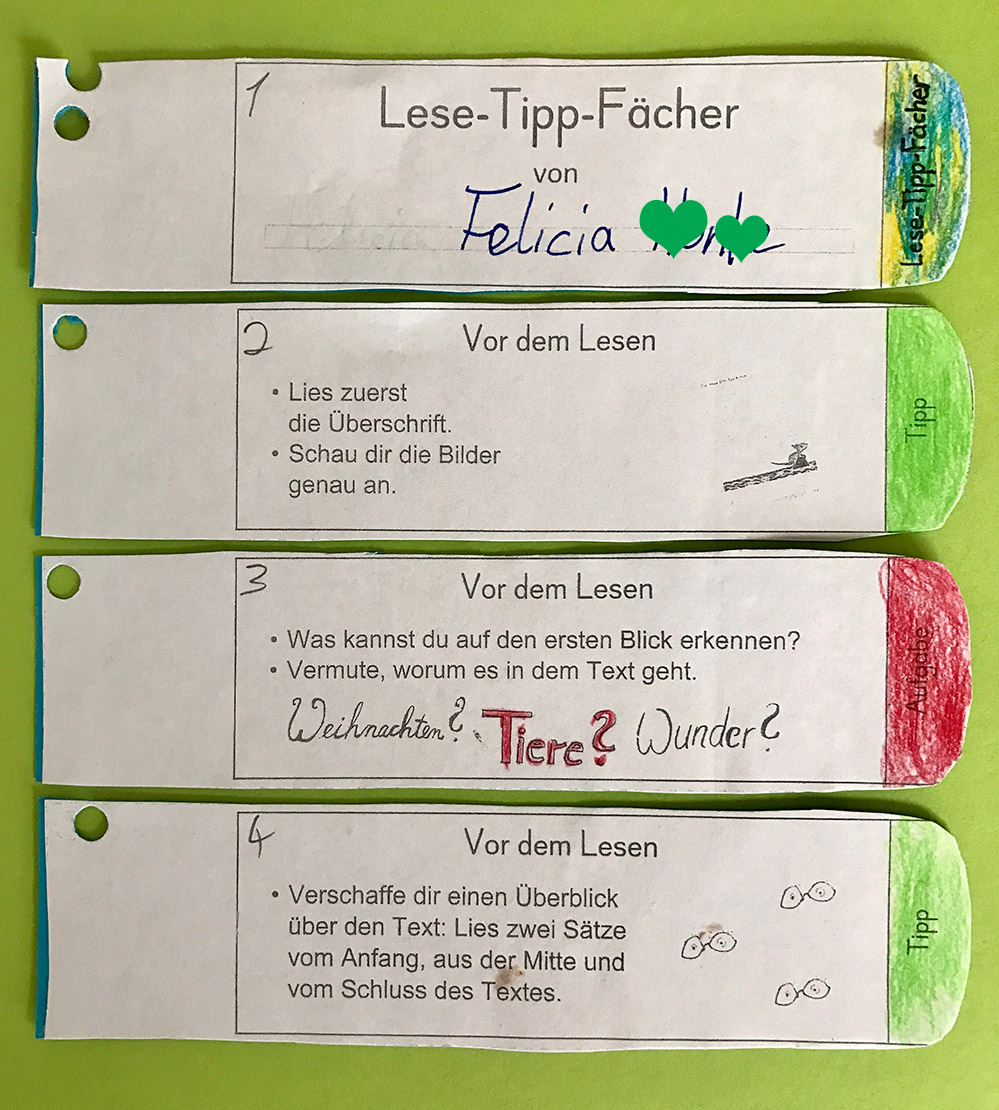 1
Lese-Tipp-Fächer
von
Felicia
Lese-Tipp-Fächer
2
Vor dem Lesen
• Lies zuerst
die Überschrift.
• Schau dir die Bilder
genau an.
Tipp
3
Vor dem Lesen
• Was kannst du auf den ersten Blick erkennen?
• Vermute, worum es in dem Text geht.
Weihnachten? Tiere? Wunder?
Aufgabe
4
Vor dem Lesen
• Verschaffe dir einen Überblick
über den Text: Lies zwei Sätze
vom Anfang, aus der Mitte und
vom Schluss des Textes.
Tipp